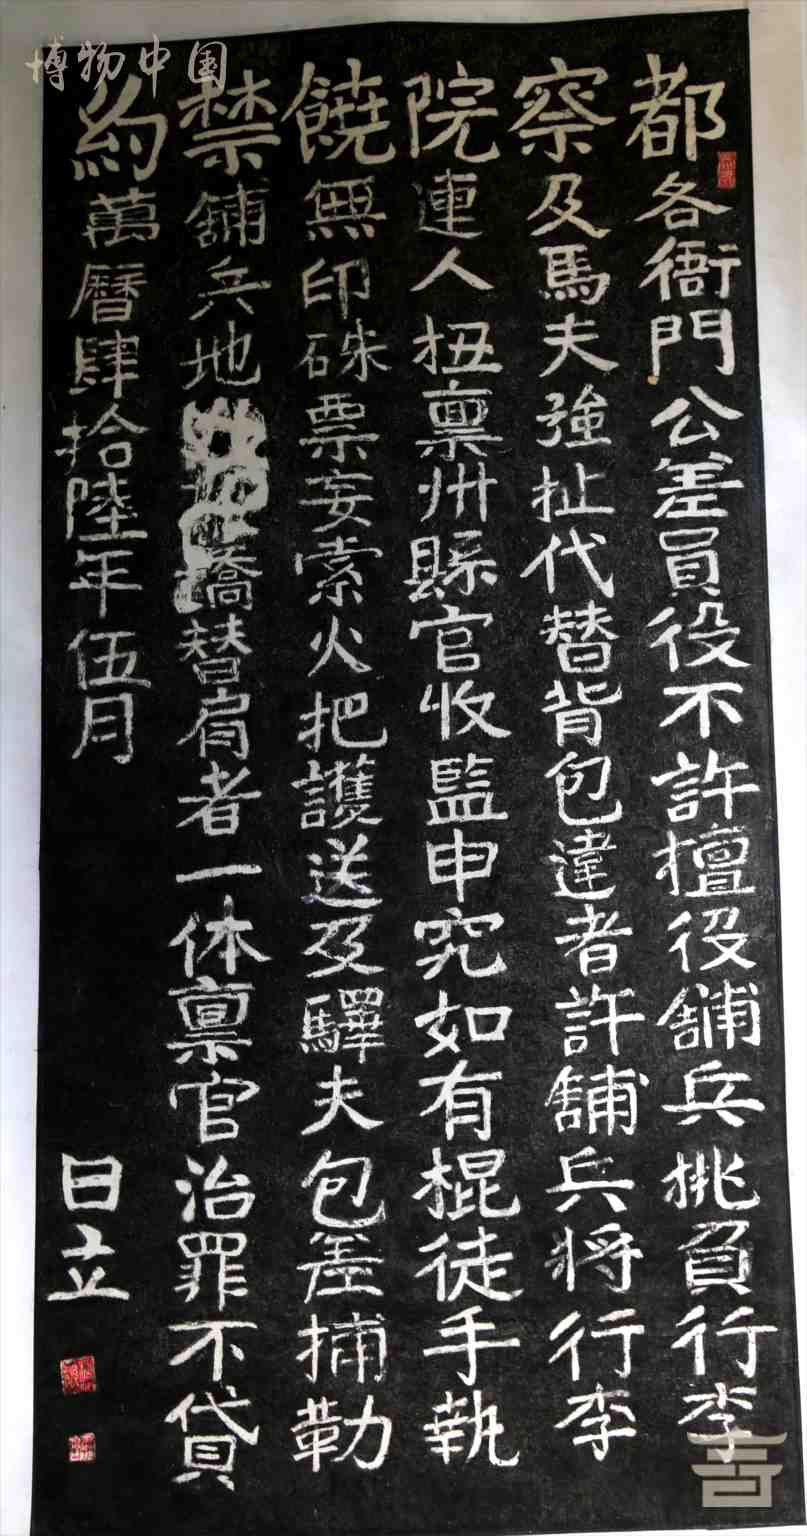 博物中国
都各衙門公差員役不許擅役舖兵挑負行李
察及馬夫強扯代替背包違者許舖兵將行李
院連人扭稟州縣官收監申究如有棍徒手執
饒無印硃票妄索火把護送及驛夫包差捕勒
禁舖兵地轎替肩者一体稟官治罪不貸
約萬曆肆拾陸年伍月日立